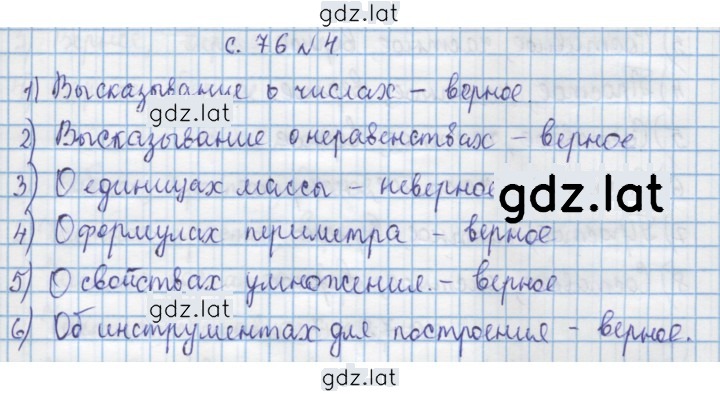 gdz.lat
с. 76 № 4.
1) Высказывание о числах – верное.
gdz.lat
2) Высказывание о неравенствах – верное
3) О единицах массы – неверное
gdz.lat
4) О формулах периметра – верное
5) О свойствах умножения. – верное
gdz.lat
6) Об инструментах для построения – верное.
gdz.lat